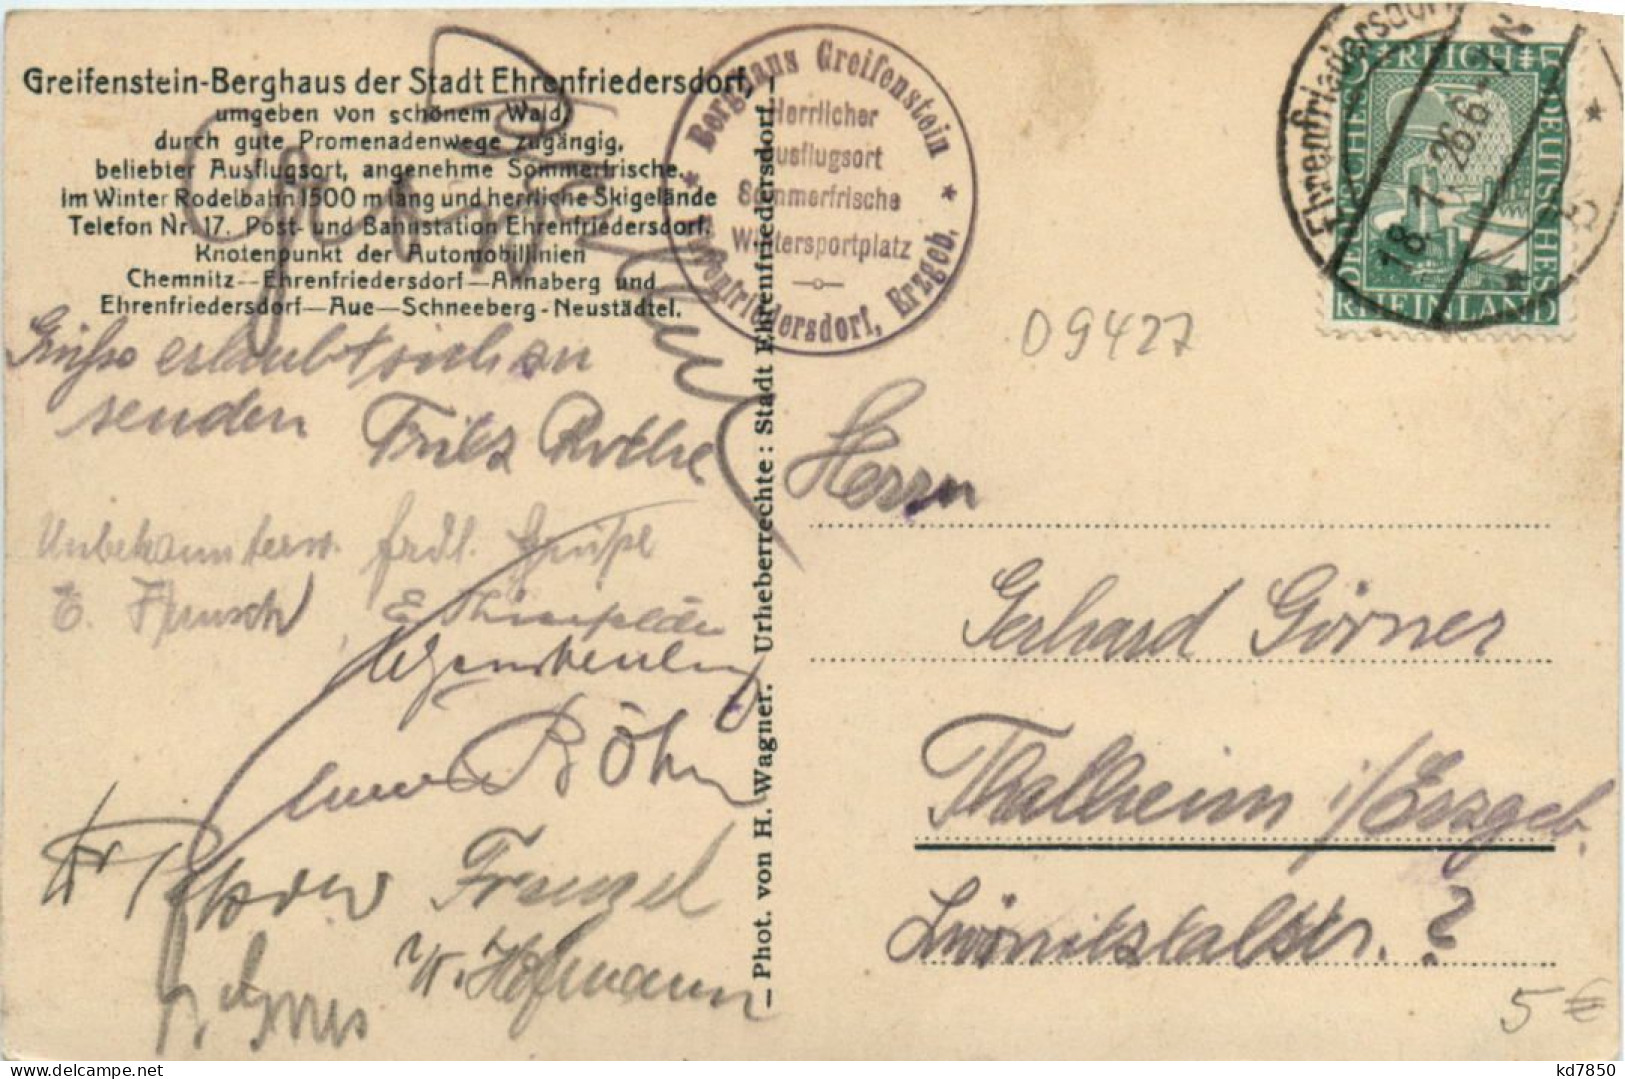 Greifenstein-Berghaus der Stadt Ehrenfriedersdorf,
umgeben von schönem Wald,
durch gute Promenadenwege zugängig,
beliebter Ausflugsort, angenehme Sommerfrische.
im Winter Rodelbahn 1500 m lang und herrliche Skigelände
Telefon Nr. 17. Post- und Bahnstation Ehrenfriedersdorf.
Knotenpunkt der Automobillinien
Chemnitz—Ehrenfriedersdorf—Annaberg und
Ehrenfriedersdorf—Aue—Schneeberg-Neustädtel.
Grüße erlaubt sich zu
senden Fritz Rothe
Unbekannterw. frdl. Grüße
E.
E.
Böhm
Frenzel
W. Hofmann
* Berghaus Greifenstein *
Herrlicher
Ausflugsort
Sommerfrische
Wintersportplatz
Ehrenfriedersdorf, Erzgeb.
— Phot. von H. Wagner. Urheberrechte: Stadt Ehrenfriedersdorf. —
Ehrenfriedersdorf
18. 1. 26. 6-7 N
DEUTSCHES REICH
DEUTSCHES
RHEINLAND
5
09427
Herrn
Gerhard Görner
Thalheim i/Erzgeb.
Zwönitztalstr. ?
5 €
kd7850